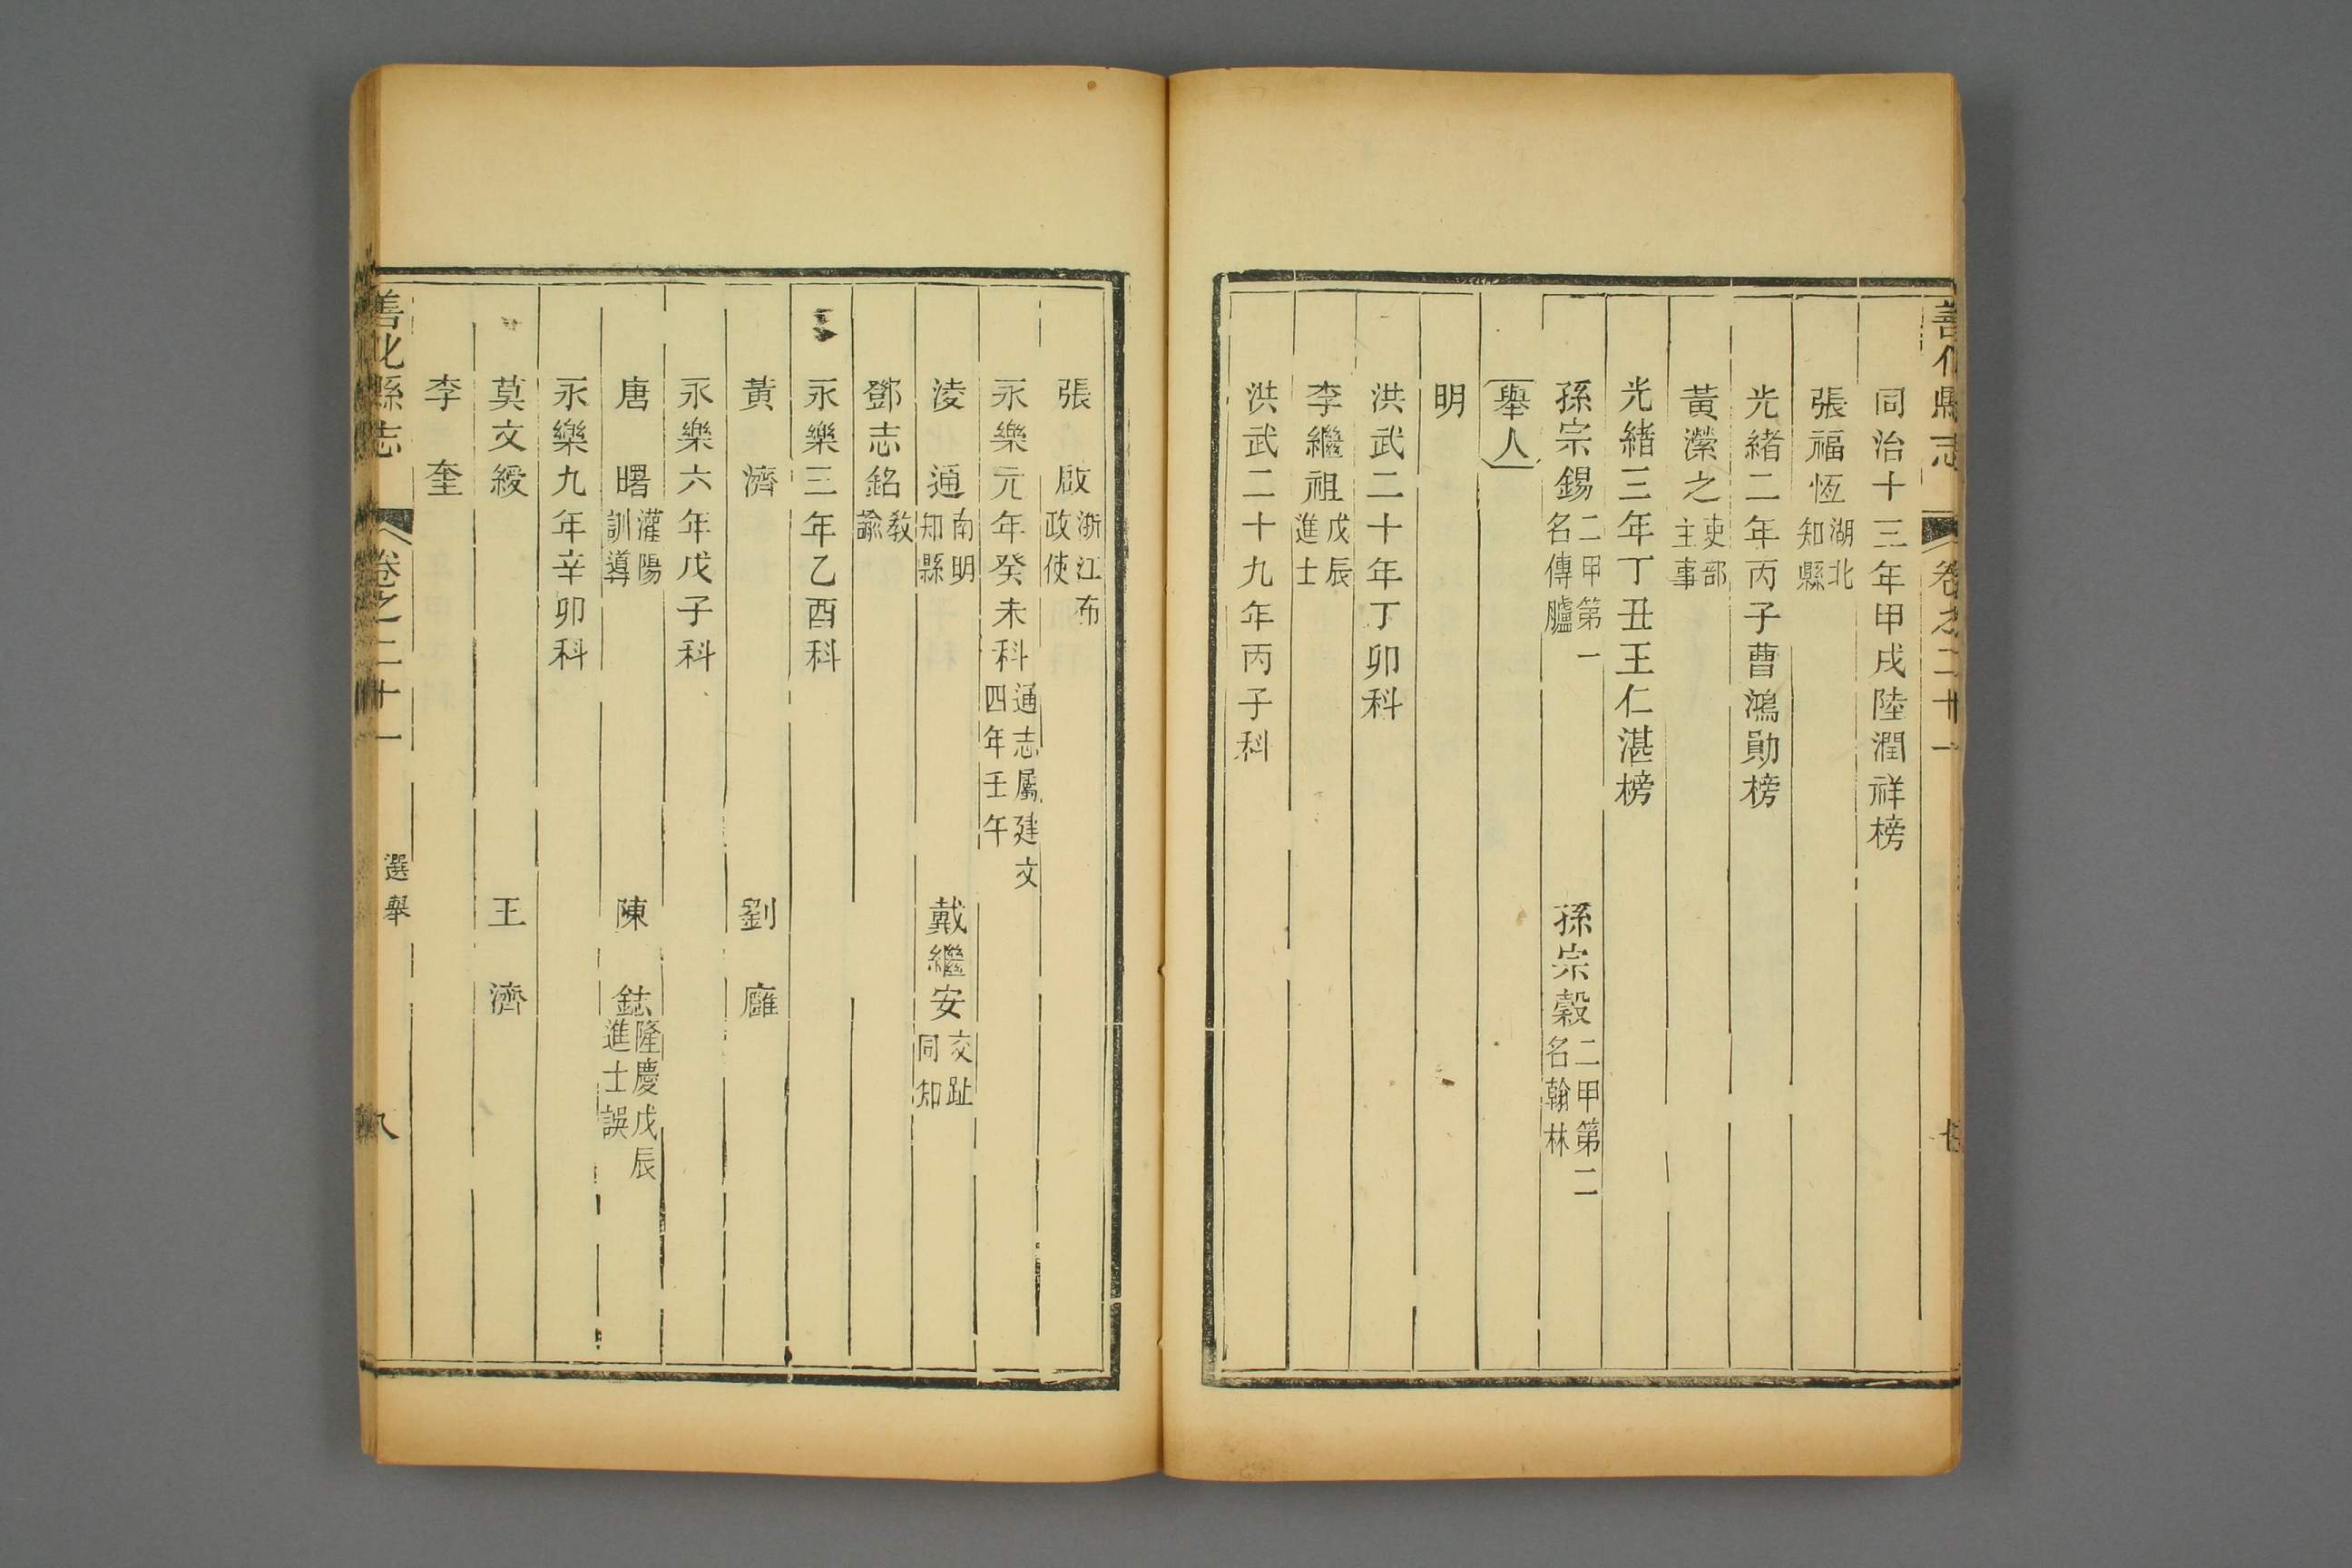 善化縣志 卷之二十一
同治十三年甲戌陸潤祥榜
張福恆 湖北知縣
光緒二年丙子曹鴻勛榜
黃濚之 吏部主事
光緒三年丁丑王仁湛榜
孫宗錫 二甲第一名傳臚 孫宗穀 二甲第二名翰林
舉人
明
洪武二十年丁卯科
李繼祖 戊辰進士
洪武二十九年丙子科
張啟 浙江布政使
永樂元年癸未科 通志屬建文四年壬午
淩通 南明知縣 戴繼安 交趾同知
鄧志銘 教諭
永樂三年乙酉科
黃濟 劉廱
永樂六年戊子科
唐曙 灌陽訓導 陳鋕 隆慶戊辰進士誤
永樂九年辛卯科
莫文綬 王濟
李奎
善化縣志 卷之二十一 選舉 八